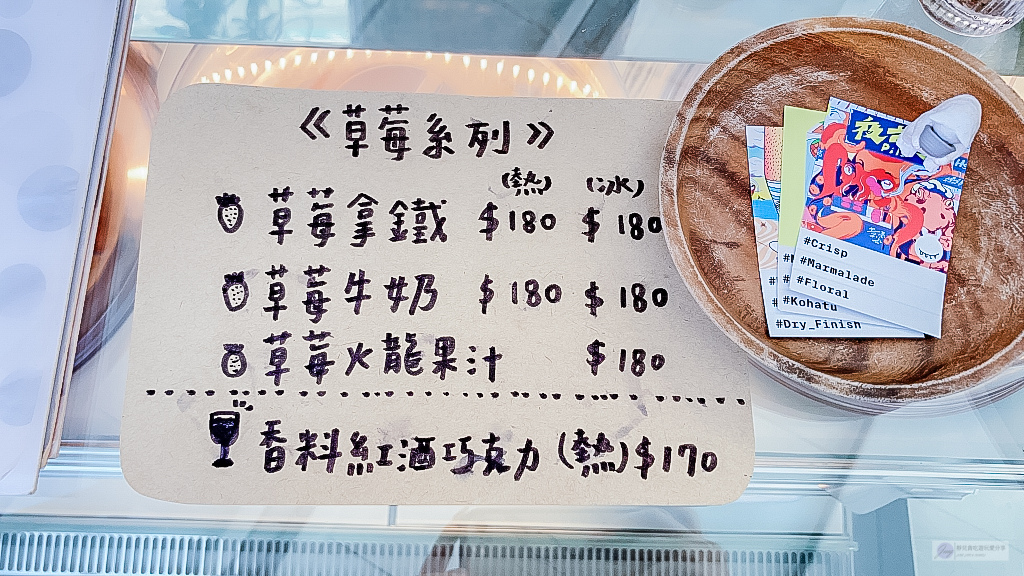 《草莓系列》
(熱) (冰)
草莓拿鐵 $180 $180
草莓牛奶 $180 $180
草莓火龍果汁 $180
香料紅酒巧克力(熱)$170
#Crisp
#Marmalade
#Floral
#Kohatu
#Dry_Finish